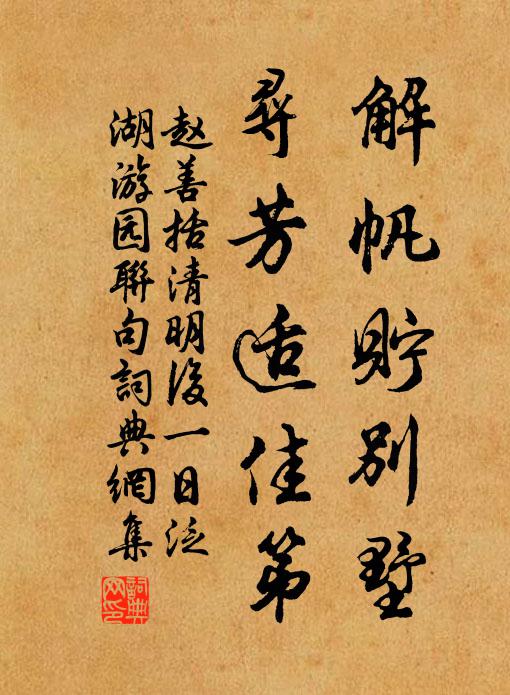 解帆貯別墅
尋芳适佳第
赵善括清明後一日泛
湖游园聯句詞典網集
詞典網印